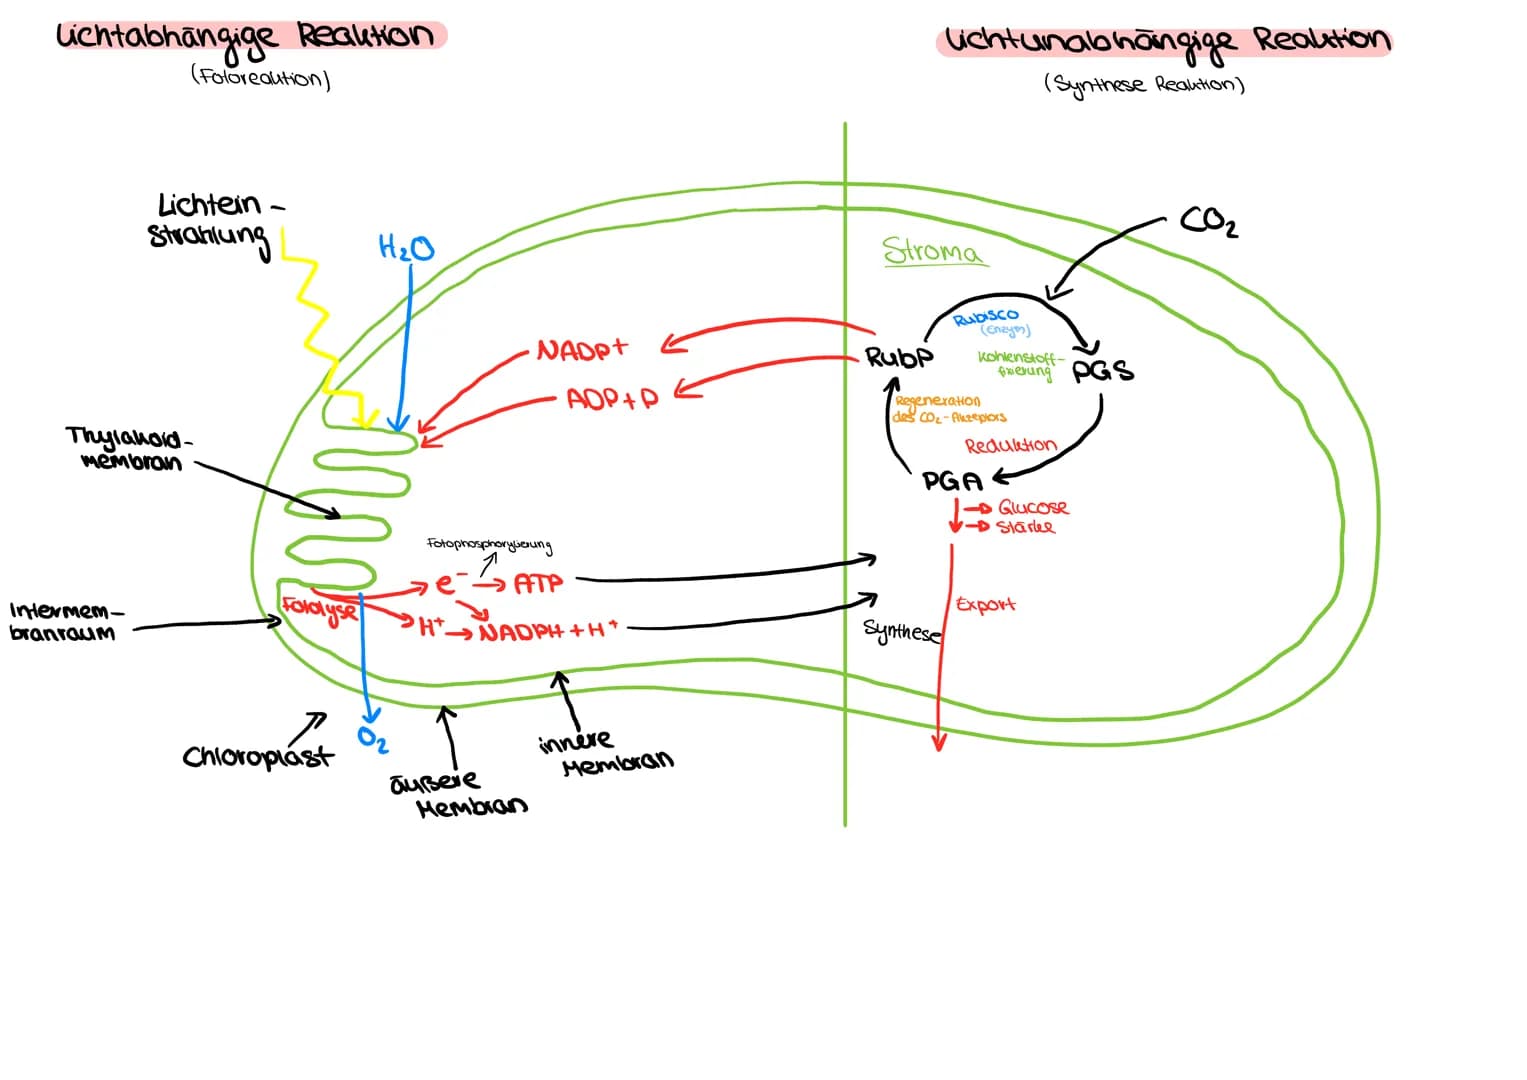 Lichtabhängige Reaktion
(Fotoreaktion)
Lichtunabhängige Reaktion
(Synthese Reaktion)
Lichtein-
strahlung
H₂O
CO₂
Stroma
NADP+
ADP+P
RubP
Rubisco
(Enzym)
Kohlenstoff-
fixierung
PGS
Regeneration
des CO₂-Akzeptors
Reduktion
PGA
Glucose
Stärke
Thylakoid-
membran
Fotophosphorylierung
e⁻ → ATP
Fotolyse
H⁺ → NADPH + H⁺
Export
Synthese
Intermem-
branraum
Chloroplast
O₂
äußere
Membran
innere
Membran